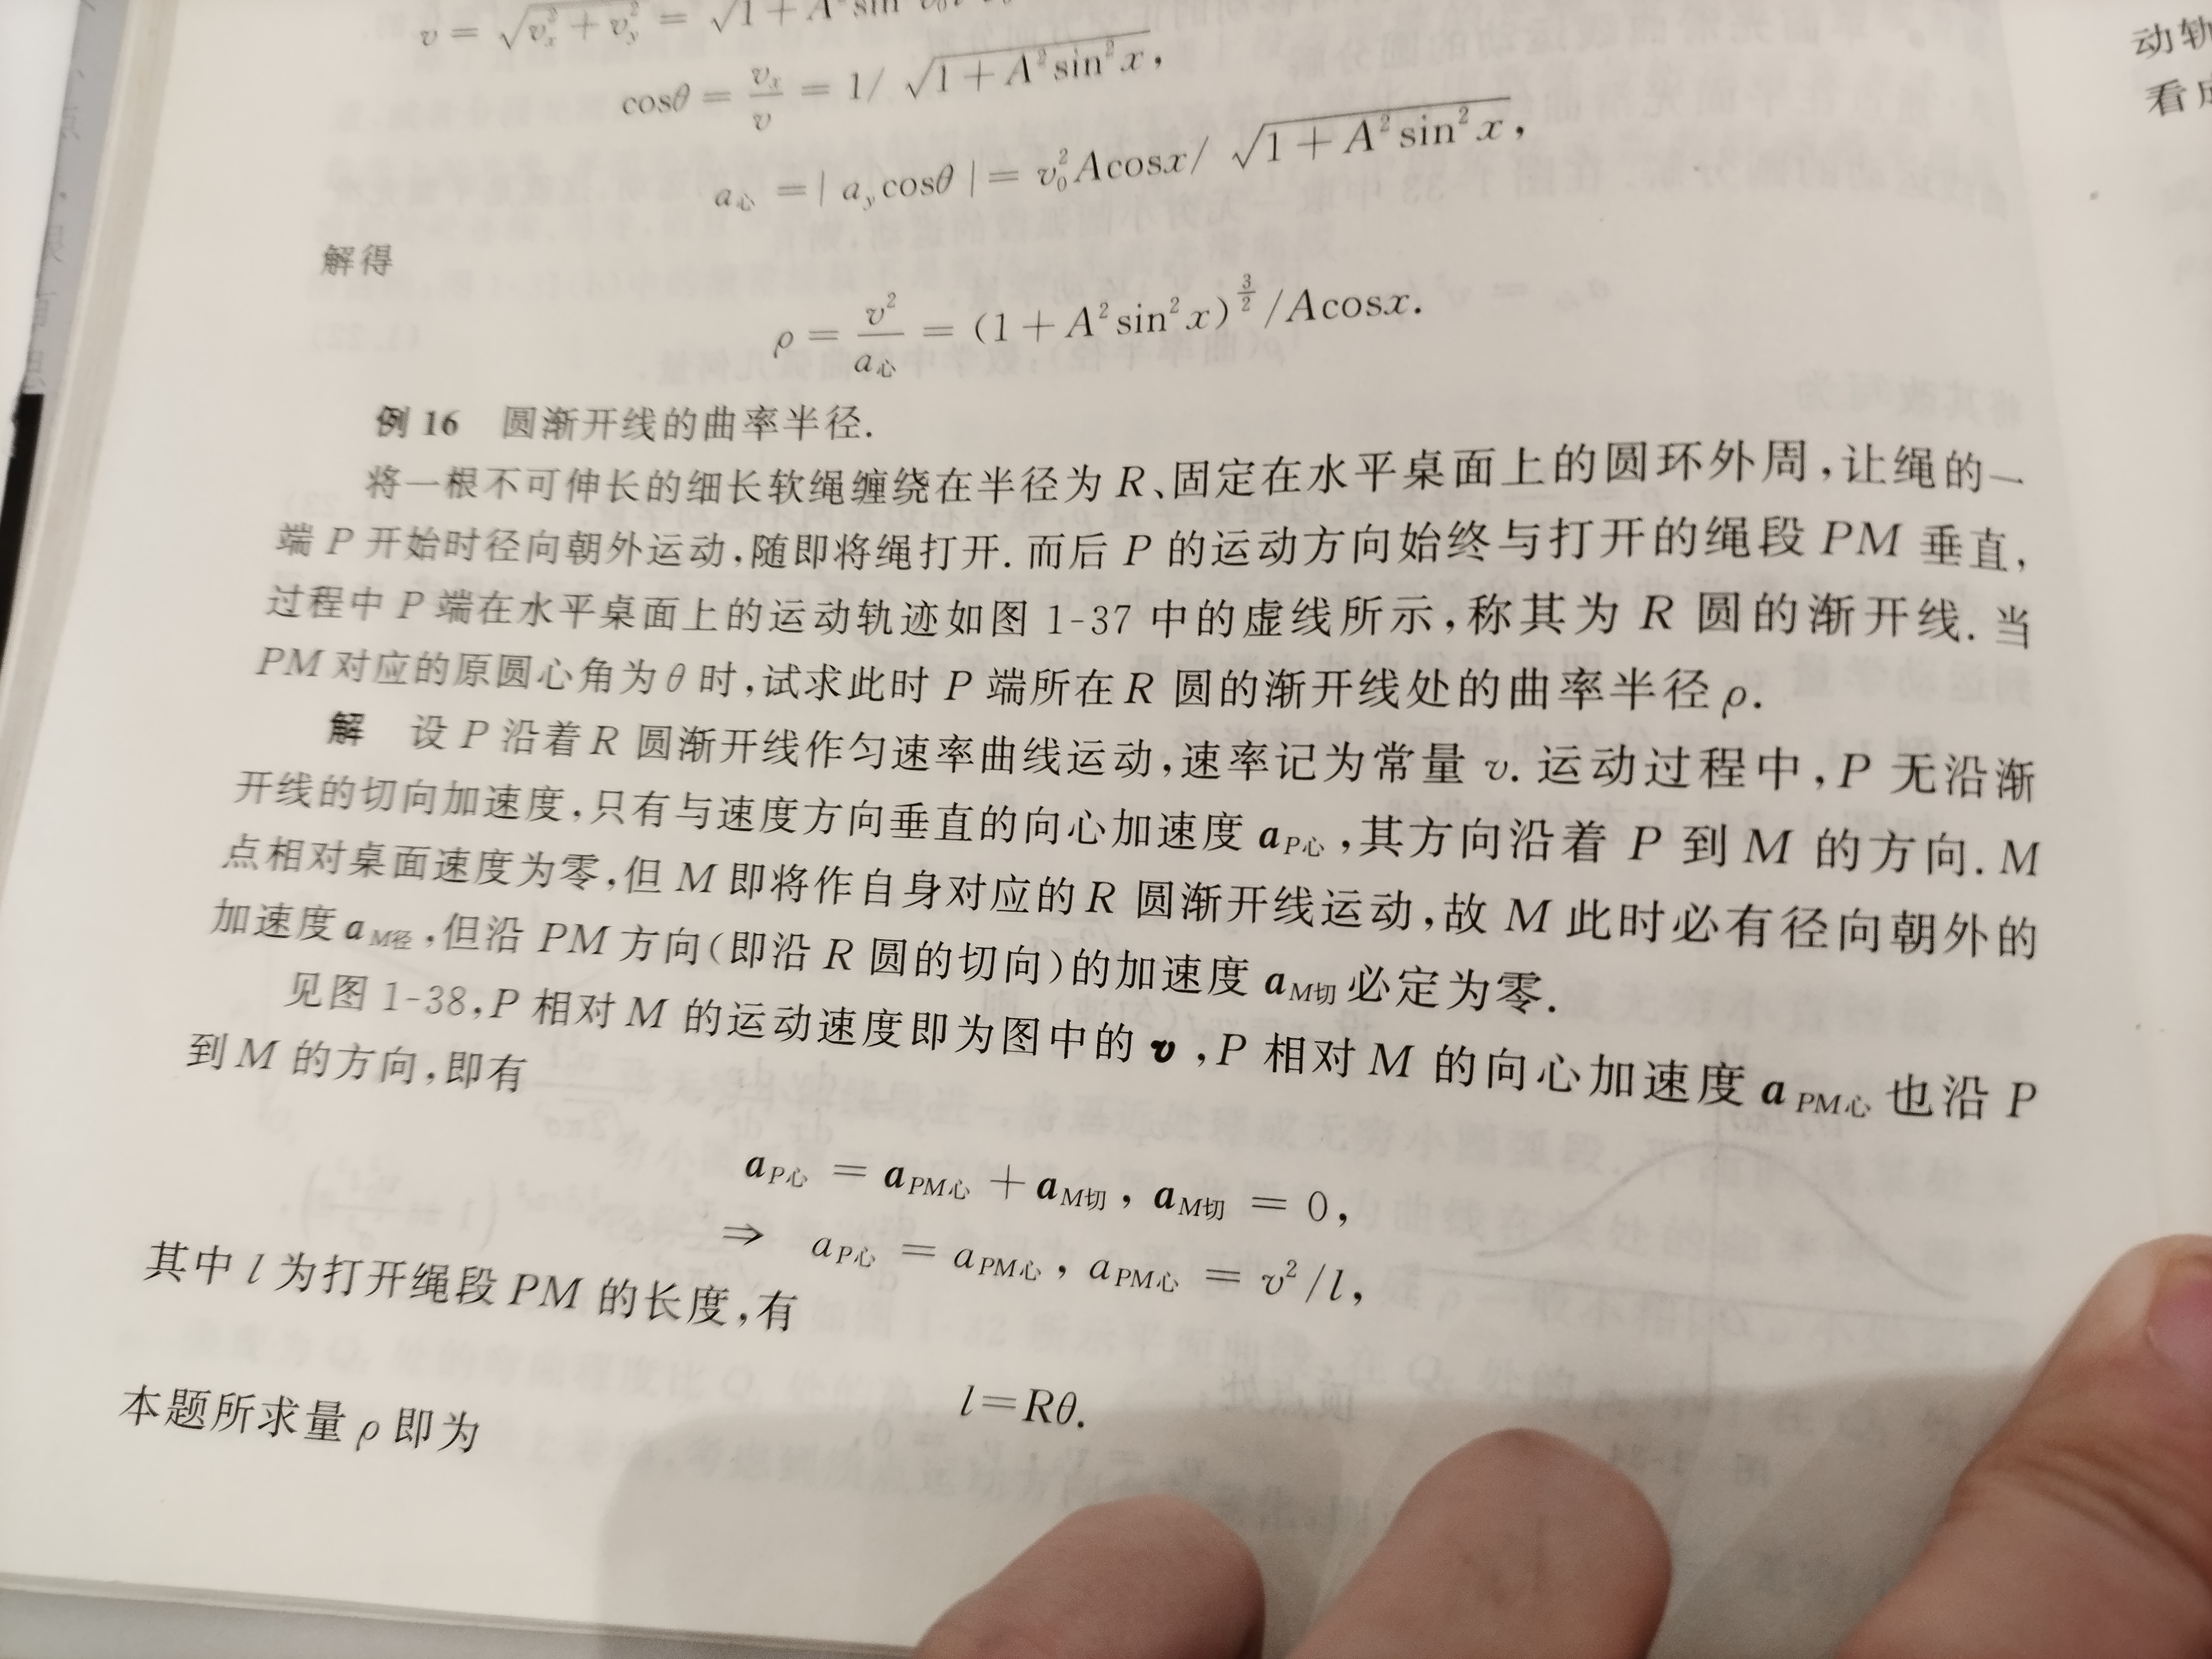 v = √(v_x² + v_y²) = √1 + A² sin²
cosθ = v_x/v = 1/ √(1 + A² sin² x),
a心 = | a_y cosθ | = v₀² A cosx/ √(1 + A² sin² x),
解得
ρ = v²/a心 = (1 + A² sin² x)^(3/2) / A cosx.
例 16 圆渐开线的曲率半径.
将一根不可伸长的细长软绳缠绕在半径为 R、固定在水平桌面上的圆环外周,让绳的一
端 P 开始时径向朝外运动,随即将绳打开. 而后 P 的运动方向始终与打开的绳段 PM 垂直,
过程中 P 端在水平桌面上的运动轨迹如图 1-37 中的虚线所示,称其为 R 圆的渐开线. 当
PM 对应的原圆心角为 θ 时,试求此时 P 端所在 R 圆的渐开线处的曲率半径 ρ.
解 设 P 沿着 R 圆渐开线作匀速率曲线运动,速率记为常量 v. 运动过程中,P 无沿渐
开线的切向加速度,只有与速度方向垂直的向心加速度 a_P心,其方向沿着 P 到 M 的方向. M
点相对桌面速度为零,但 M 即将作自身对应的 R 圆渐开线运动,故 M 此时必有径向朝外的
加速度 a_M径,但沿 PM 方向(即沿 R 圆的切向)的加速度 a_M切 必定为零.
见图 1-38,P 相对 M 的运动速度即为图中的 v,P 相对 M 的向心加速度 a_PM心 也沿 P
到 M 的方向,即有
a_P心 = a_PM心 + a_M切, a_M切 = 0,
⇒ a_P心 = a_PM心, a_PM心 = v²/l,
其中 l 为打开绳段 PM 的长度,有
l = Rθ.
本题所求量 ρ 即为
动轨
看成